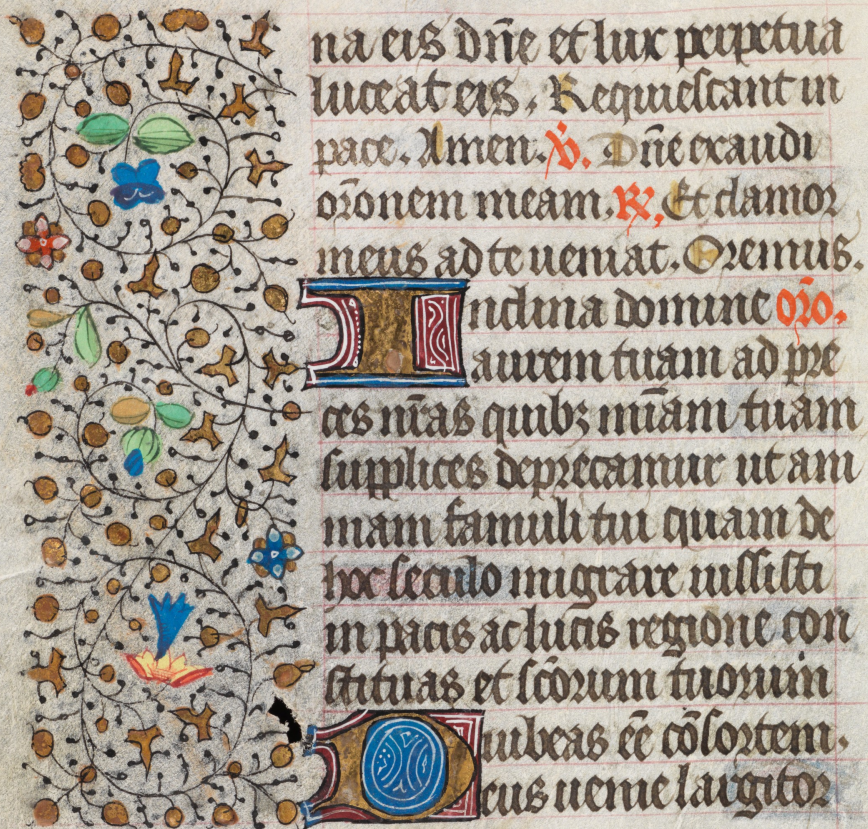 na eis dn̄e et lux perpetua
luceat eis. Requiescant in
pace. Amen. V̄. Dn̄e exaudi
or̄onem meam. R̄. Et clamor
meus ad te veniat. Oremus.
Inclina domine or̄o.
aurem tuam ad pre
ces nr̄as quibꝫ mīam tuam
supplices deprecamur ut am
mam famuli tui quam de
hoc seculo migrare iussisti
in pacis ac lucis regione con
stituas et sc̄orum tuorum
iubeas ēē cōsortem.
Deus venie largitor